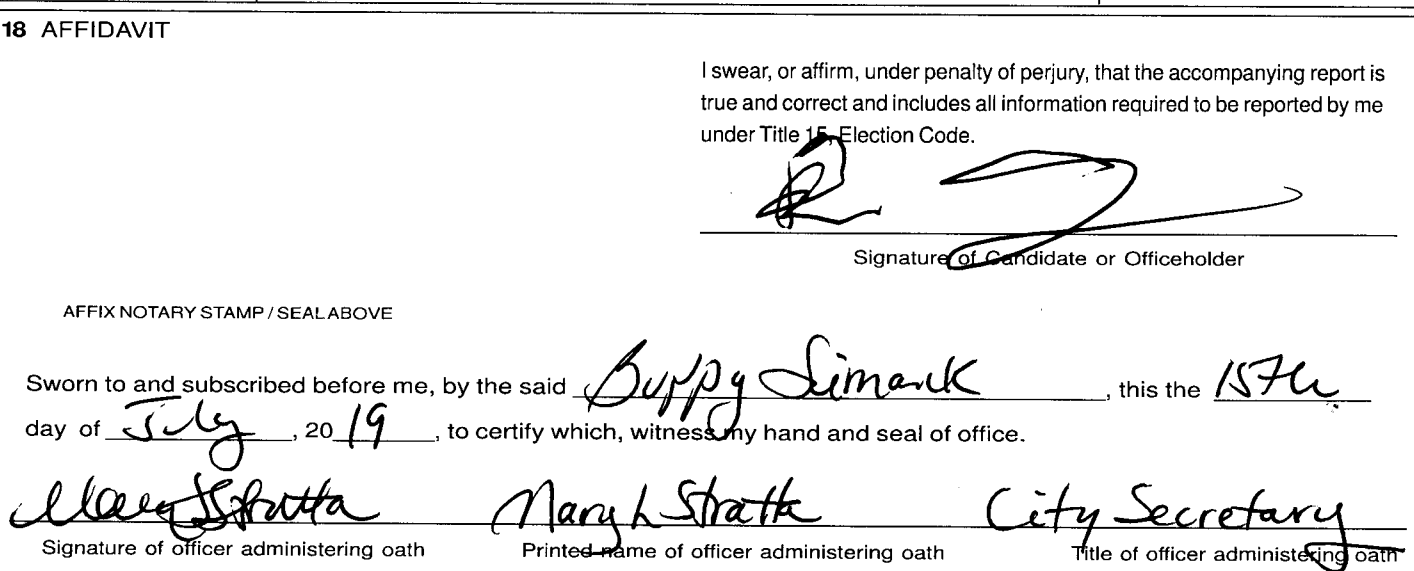 18 AFFIDAVIT
I swear, or affirm, under penalty of perjury, that the accompanying report is
true and correct and includes all information required to be reported by me
under Title 15, Election Code.
Signature of Candidate or Officeholder
AFFIX NOTARY STAMP / SEAL ABOVE
Sworn to and subscribed before me, by the said Buppy Simank, this the 15th
day of July, 20 19, to certify which, witness my hand and seal of office.
Mary L Stratta Mary L Stratta City Secretary
Signature of officer administering oath Printed name of officer administering oath Title of officer administering oath